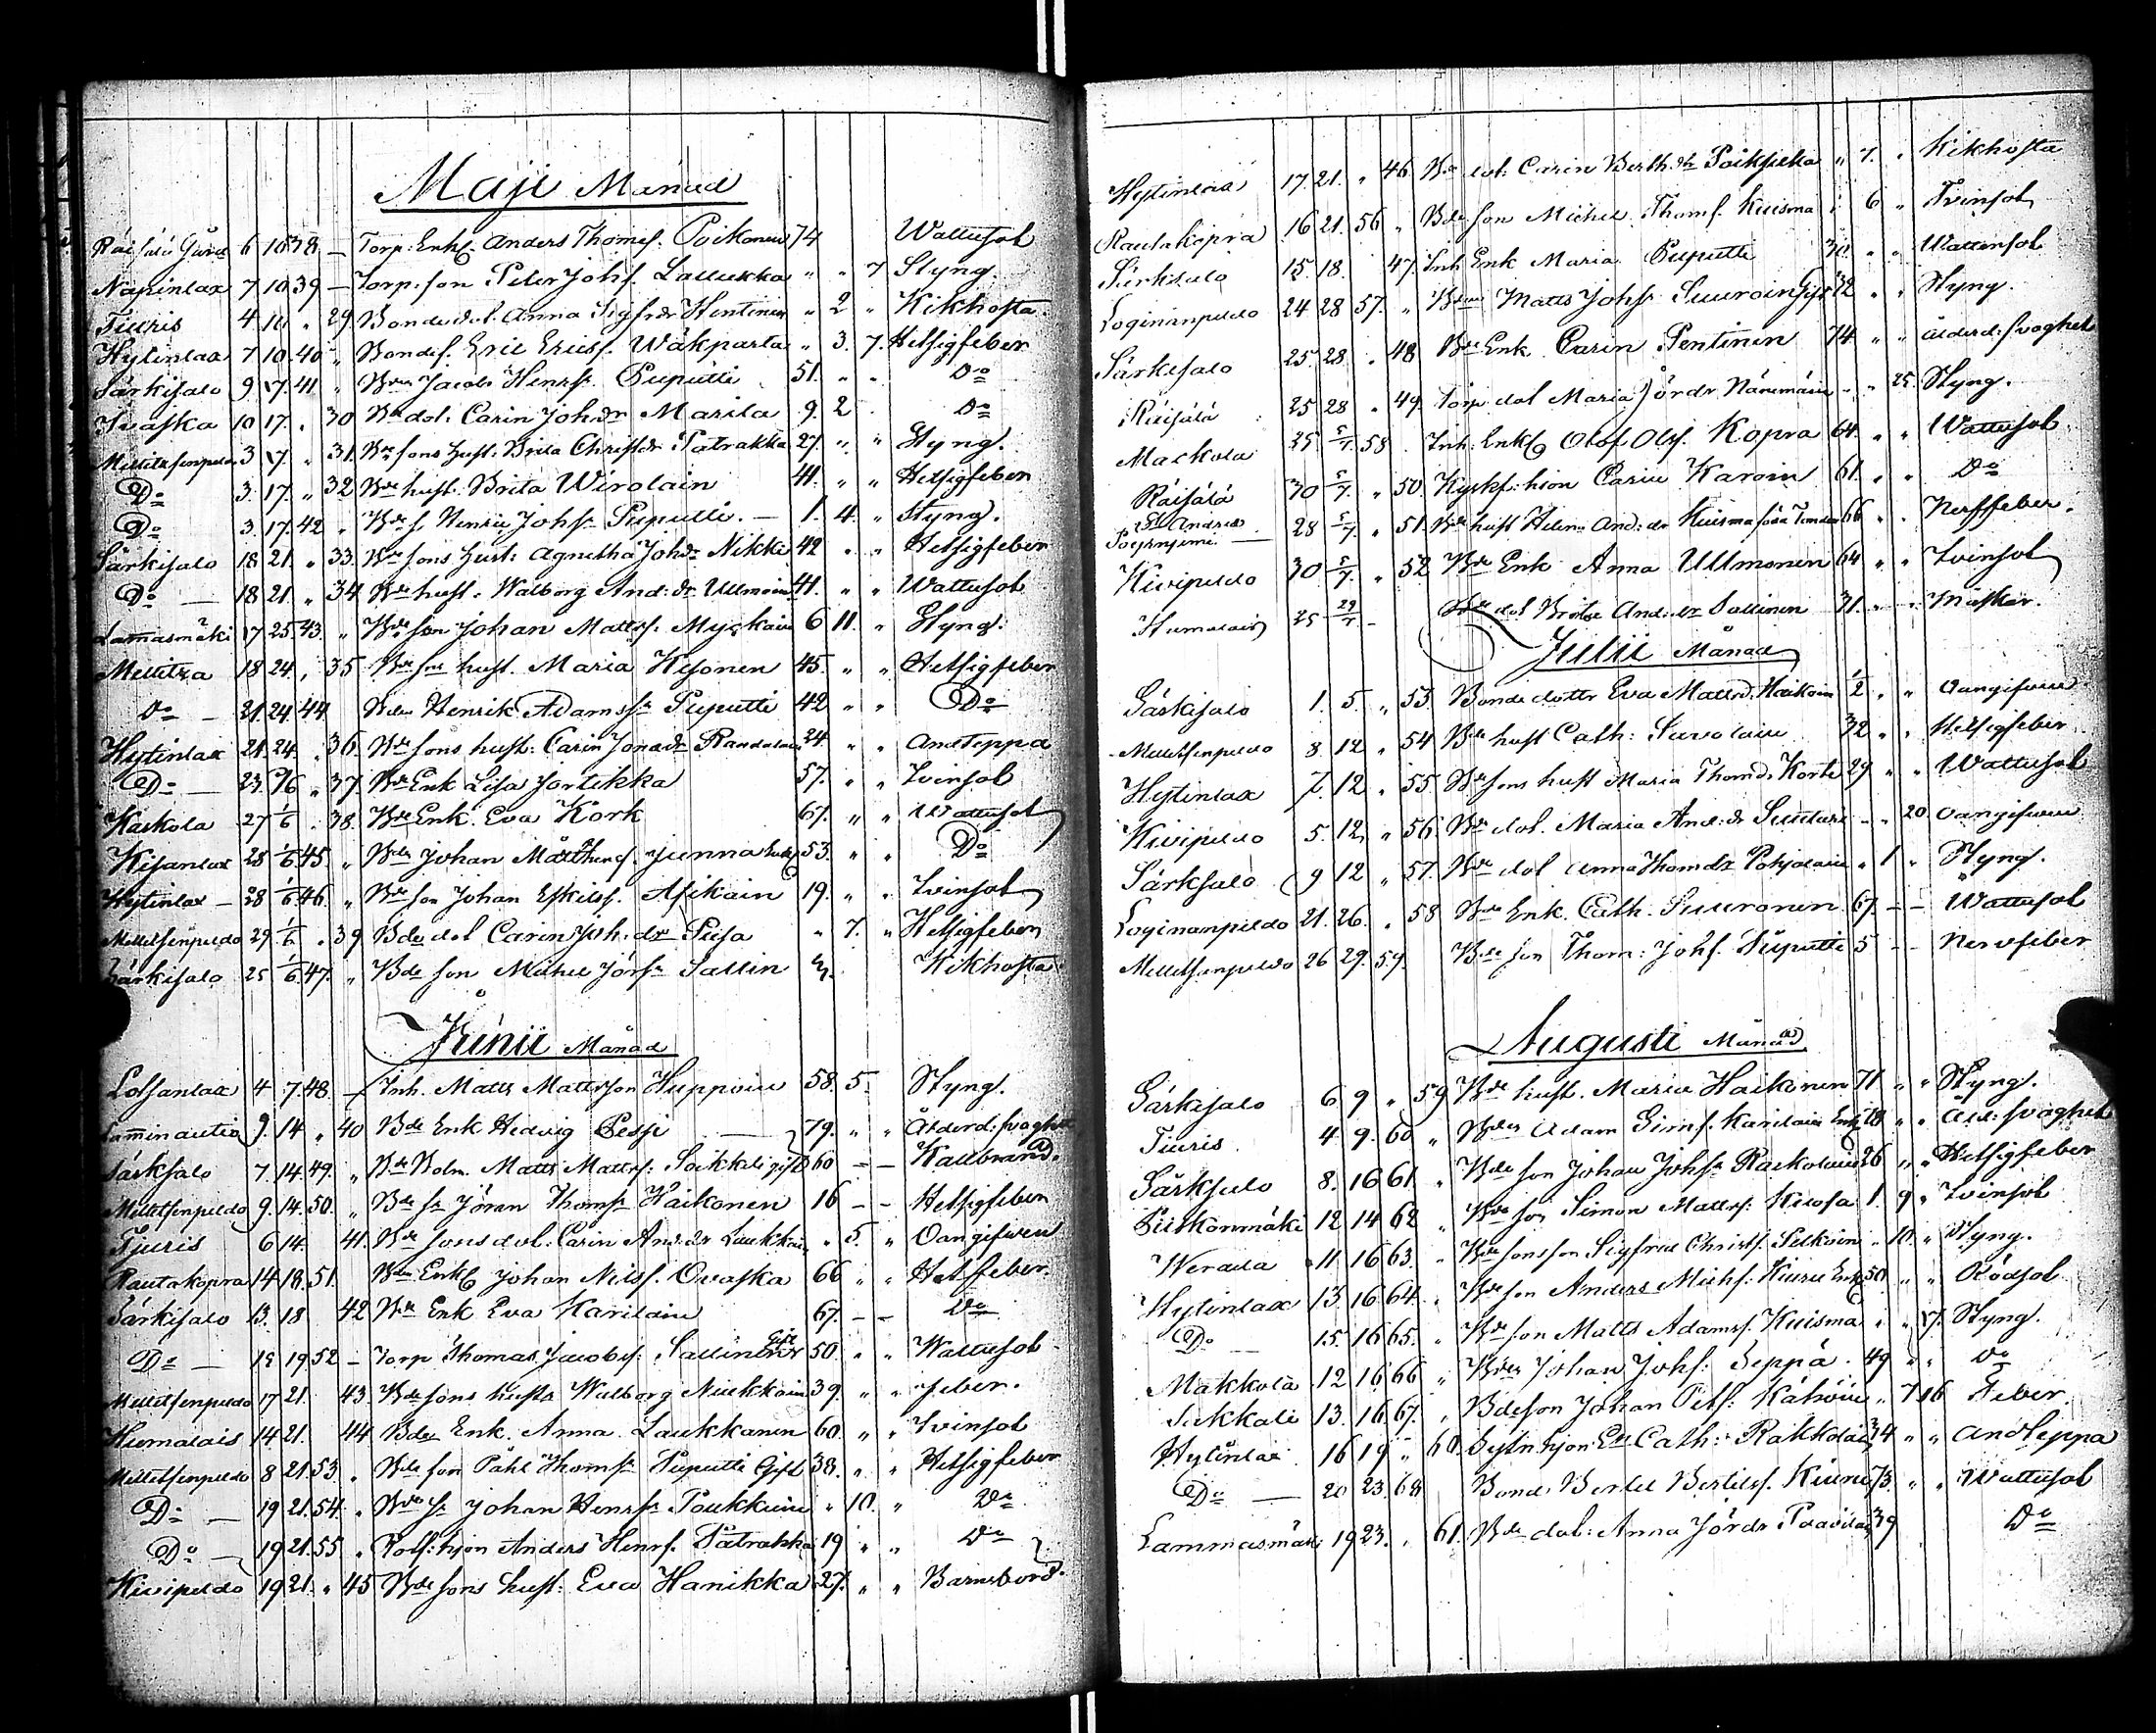 Maji Månad
Räisälä Gård 6 10 38 — Torp: Enkl Anders Thomss. Poikonen 74 Wattusot
Napinlax 7 10 39 — Torp: son Peter Johs. Lallukka " " 7 Styng.
Tiuris 4 10 " 29 Bonde dot. Anna Sigfrdr Hentinen " 2 " Kikhosta
Hytinlax 7 10 40 " Bondes. Eric Erics. Wäkparta " 3. 7. Hetsigfeber
Särkisalo 9 17. 41 " Bden Jacob Henrss. Puputti 51. " " Do
Ivaska 10 17. " 30 Bde dot. Carin Johsdr Marila 9. 2 Do
Mellitsenpeldo 3 17. " 31. Bde sons hust. Brita Christdr Patrakka 27. " " Styng.
Do 3. 17. " 32 Bde hust. Brita Wirolain 41. " " Hetsigfeber
Do 3. 17. 42 " Bde s. Henric Johss. Puputti. — 1. 4. " Styng.
Särkisalo 18 21. " 33. Bde sons hust: Agnetha Johdr Nikki 42 " " Hetsigfeber
Do — 18 21. " 34 Bde hust. Walborg And: dr Ullmoin 41. " " Wattusot
Lamasmäki 17 25 43. " Bde son Johan Mattss. Myckain 6 11. " Styng.
Mellitza 18 24. " 35 Bde sons hust. Maria Kesonen 45. " " Hetsigfeber
Do — 21 24. 44 Bden Henrik Adamss. Puputti 42 " " Do
Hytinlax 21 24. " 36. Bde sons hust: Carin Jonadr Randalain 24. " " Andteppa
Do — 23 1/6 " 37 Bde Enk Lisa Jortikka 57. " " Tvinsot
Kaskola 27 1/6 " 38. Bde Enk. Eva Kork 67. " " Wattusot
Kesanlax 28 1/6 45. " Bden Johan Mårthens. Junna Enkl 53. " " Do
Hytinlax — 28 1/6 46. " Bde son Johan Eskilss. Asikain 19. " " Tvinsot
Mellitsenpeldo 29 1/6 " 39 Bde dot Carin Joh: dr Pusa " 7. " Hetsigfeber
Särkisalo 25 1/6 47. " Bde son Michel Jörss. Sallin 3. Kikhosta
Junii Månad
Lossanlax 4 7 48. — Inh. Matts Mattsson Huppoin 58. 5. Styng.
Lamminautio 9. 14 " 40 Bde Enk Hedvig Pessi — 79. " " Ålderd: svaghet
Särksalo 7 14 49. " Bde Bolm. Matts Mattss: Soikkeli gift 60 — — Kallbrand.
Mellitsenpeldo 9. 14. 50. " Bde s. Jöran Thomss. Haikonen 16 — — Hetsigfeber
Tjuris 6 14. 41. Bde sons dot: Carin And: dr Laukkain " 5. " Oangifwen
Rautakopra 14 18 51. Bden Enkl Johan Nilss. Ovaska 66 " " Hetsfeber.
Särkisalo 13. 18 42 Bde Enk Eva Karilain 67. — — Do
Do — 15 19 52 — Torp Thomas Jacobss. Sallinen Gift 50. " " Wattusot
Mellitsenpeldo 17 21. 43. Bde sons hustr Walborg Niukkain 39. " " feber.
Humalais 14 21. 44 Bde Enk. Anna Laukkanen 60. " " Tvinsot
Mellitsenpeldo 8 21. 53. " Bde son Påhl Thomss. Puputti Gift 38. " " Hetsigfeber
Do — 19 21. 54. " Bde s. Johan Henrss. Poukkain " 10. " Do
Do — 19 21. 55 " Rotf: hjon Anders Henrs. Patrakka 19 " " Do
Kivipeldo 19 21. " 45 Bde sons hust: Eva Hanikka 27. " " Barnsbörd.
Hytinlax 17 21. " 46 Bde dot: Carin Berth: dr Poikselka " 7. " Kikhosta
Rautakopra 16 21. 56 " Bde son Michel Thoms. Kuisma 1. 6 " Tvinsot
Särksalo 15. 18. 47. Inh Enk Maria Puputti 70. " " Wattusot
Loginanpeldo 24 28 57. " Bden Matts Johss. Suuroin Gift 72 " " Styng.
Särkisalo 25. 28. " 48 Bde Enk Carin Pentinen 74 " " ålderd: svaghet
Räisälä 25 28 " 49. Torp dot Maria Jördr Näremäin — " 25. Styng.
Mackola 25. 5/7. 58 Inh: Enkl Olof Olss. Kopra 64. " " Wattusot
Räisälä 30 5/7. " 50. Kyrkf: hjon Carin Karoin 61. " " Do
St Andreæ Pöyryniemi — 28 5/7. " 51. Bde hust Helena And: dr Kuisma 66 " " Nerffeber.
Kivipeldo 30 5/7. " 52 Bde Enk Anna Ullmonen 64 " " Tvinsot
Humalais 25 29/7 — Bde dot Brita And: dr Sallinen 31. " " Mässker.
Julii Månad
Särkisalo 1. 5. " 53. Bonde dottr Eva Mattsd. Haikoin 1/2 " " Oangifwen
Mellitsenpeldo 8 12 " 54 Bde hust Cath: Savolain 32 " " Hetsigfeber
Hytinlax 7. 12. " 55. Bde sons hust Maria Thomd. Korte 29 " " Wattusot
Kivipeldo 5. 12. " 56. Bde dot. Maria And: dr Suutari — " 20 Oangifwen
Särksalo 9 12 " 57. Bde dot Anna Thomdr Pohjolain " 1 " Styng.
Loginanpeldo 21. 26. " 58 Bde Enk. Cath. Suuronen 67. — — Wattusot
Mellitsenpeldo 26 29. 59. Bde son Thom: Johs. Puputti 5 — — Nervfeber
Augusti Månad
Särkisalo 6 9 " 59 Bde hust. Maria Haikonen 71. " " Styng.
Tiuris 4. 9. 60 " Bden Adam Simss. Karilain Enkl 78 " " Åld: svaghet
Särksalo 8. 16 61 " Bde son Johan Johss. Raskolain 26 " " Hetsigfeber
Putkonmäki 12 14 62 " Bde son Simon Mattss: Kiiosa 1. 9 " Tvinsot
Werada 11 16 63. " Bde sons son Sigfred Christs. Pelkoin " 10. " Styng.
Hytinlax 13. 16 64. " Bde son Anders Michs. Kiuru Enkl 50. " " Rödsot
Do — 15. 16 65. " Bde son Matts Adamss. Kuisma " " 17. Styng.
Makkola 12 16 66 " Bden Johan Johs: Seppä. 49 " " Do
Sukkali 13. 16 67. " Bde son Johan Pets. Kähöin " 7 16 Feber.
Hytinlax 16 19 " 60. Sytn hjon En Cath: Rakkolain 34 " " Andteppa
Do — 20 23. 68 Bond: Bertil Bertilss. Kiuru 73. " " Wattusot
Lammasmäki 19 23. " 61. Bde dot: Anna Jördr Paavilain 39 Do